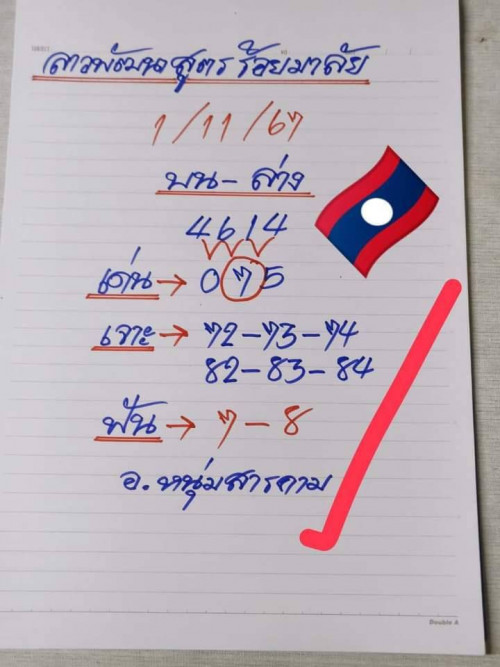 ลาวพัฒนาสูตรร้อยมาลัย
1/11/67
บน-ล่าง
4614
เด่น→075
เจาะ→72-73-74
82-83-84
ฟัน→7-8
อ.หนุ่มสารคาม
Double A